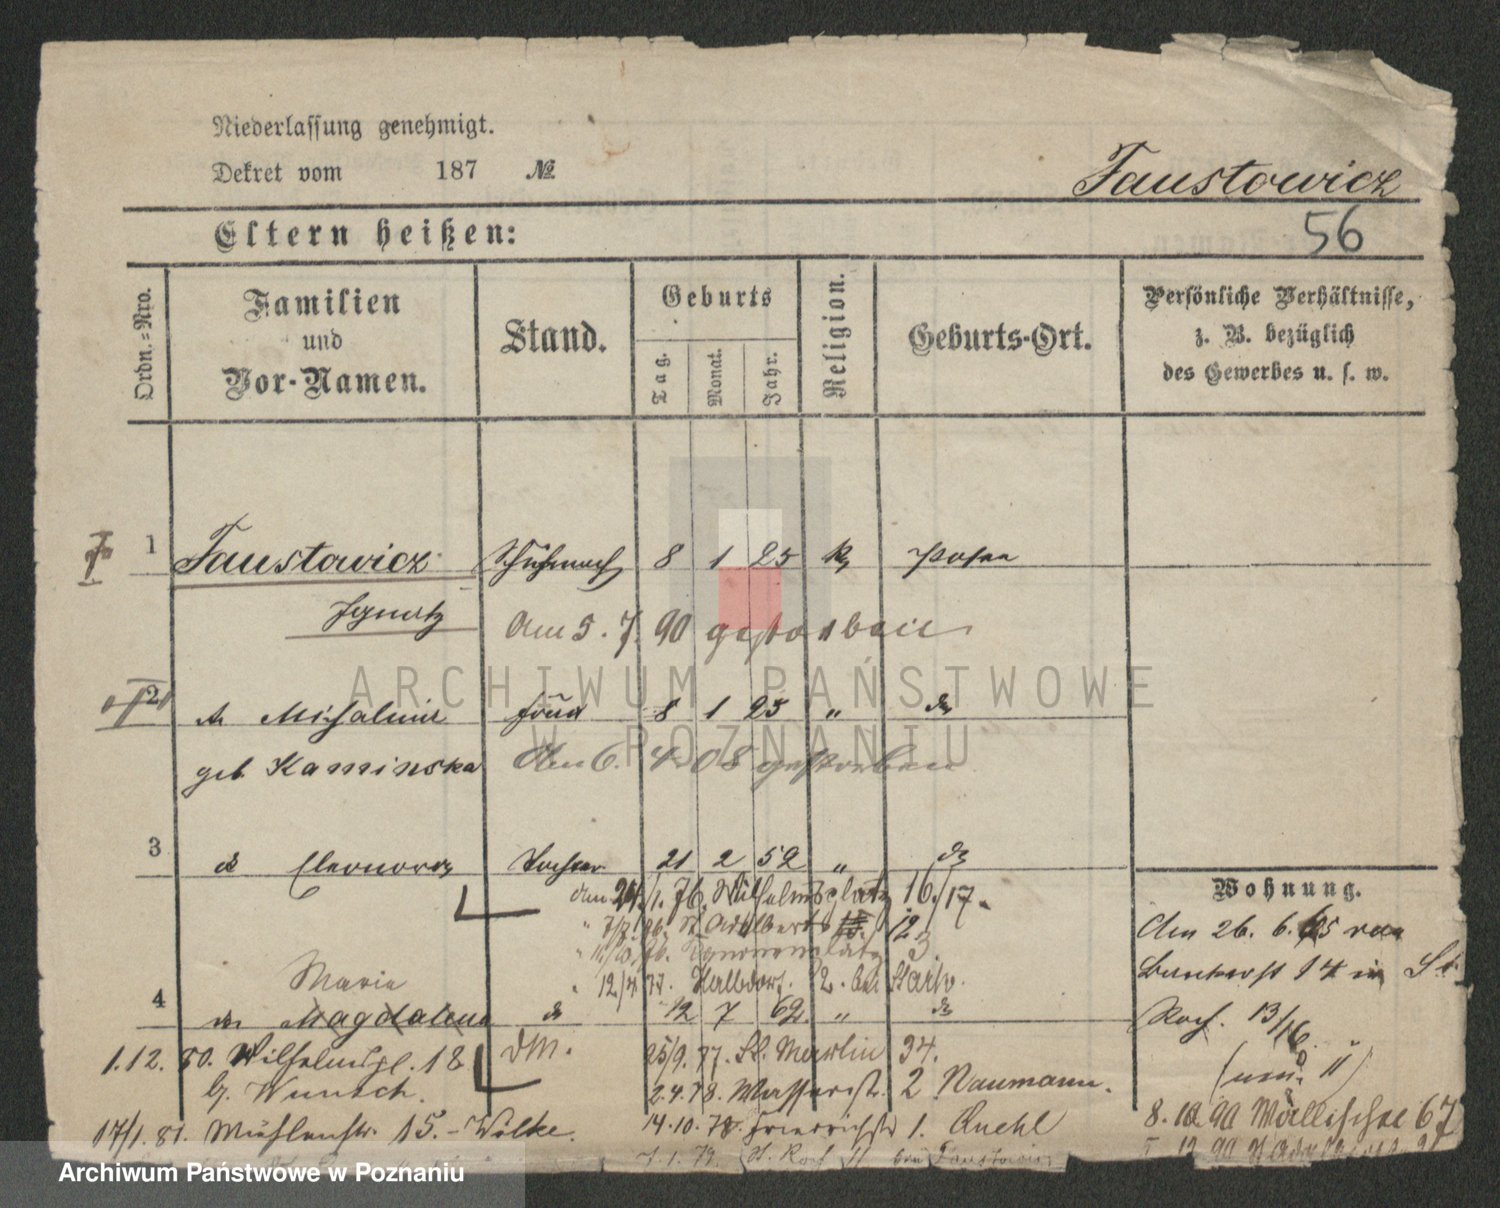 Niederlassung genehmigt.
Dekret vom 187 №
Faustowicz
56
Eltern heißen:
Ordn.-Nro.
Familien
und
Vor-Namen.
Stand.
Geburts
Tag.
Monat.
Jahr.
Religion.
Geburts-Ort.
Persönliche Verhältnisse,
z. B. bezüglich
des Gewerbes u. s. w.
1 Faustowicz Schuhmach 8 1 25 k Posen
Ignatz
Am 5. 7. 90 gestorben
2 Michalina Frau 8 1 25 "
geb Kaminska
Am 6. 4. 08 gestorben
3 Eleonora Tochter 21 2 52 "
den 24/1. 76. Wilhelmsplatz 16/17.
St Adalbert 12
3.
12/4 77. Halbdorf. 2.
Maria
4 Magdalena 12 7 62 "
25/9. 77. St. Martin 34.
2.4.78. Wasserst. 2 Naumann.
14.10.78. Friedrichstr 1. Ruehl
7.1.79. St. Roch 11
1.12.80. Wilhelmspl. 18
b/. Wunsch.
17/1.81. Mühlenstr. 15. - Wilke.
Wohnung.
Am 26. 6.
14 in St
Roch. 13/16.
8.10.90 Wallischei 67
12 90
ARCHIWUM PAŃSTWOWE
W POZNANIU
Archiwum Państwowe w Poznaniu